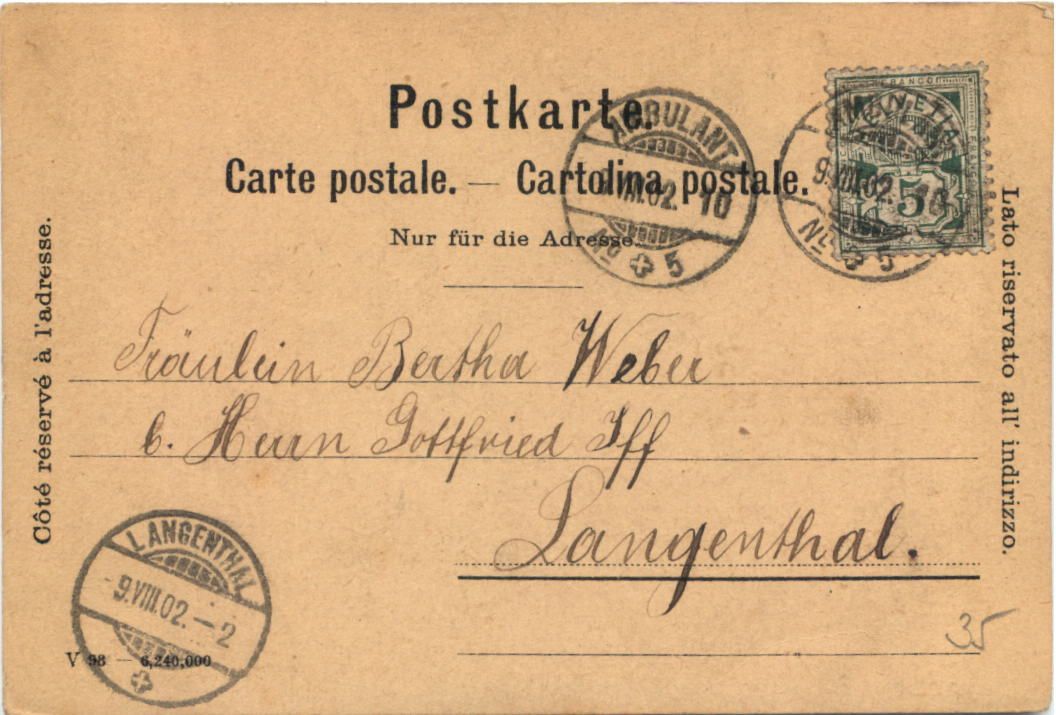 Postkarte.
Carte postale. — Cartolina postale.
Nur für die Adresse.
Côté réservé à l'adresse.
Lato riservato all' indirizzo.
FRANCO
HELVETIA
5
AMBULANT
9.VIII.02. 10
No 5
AMBULANT
VIII.02. 10
No 5
Fräulein Bertha Weber
b. Herrn Gottfried Iff
Langenthal.
LANGENTHAL
9.VIII.02. – 2
V 98 — 6,240,000
35